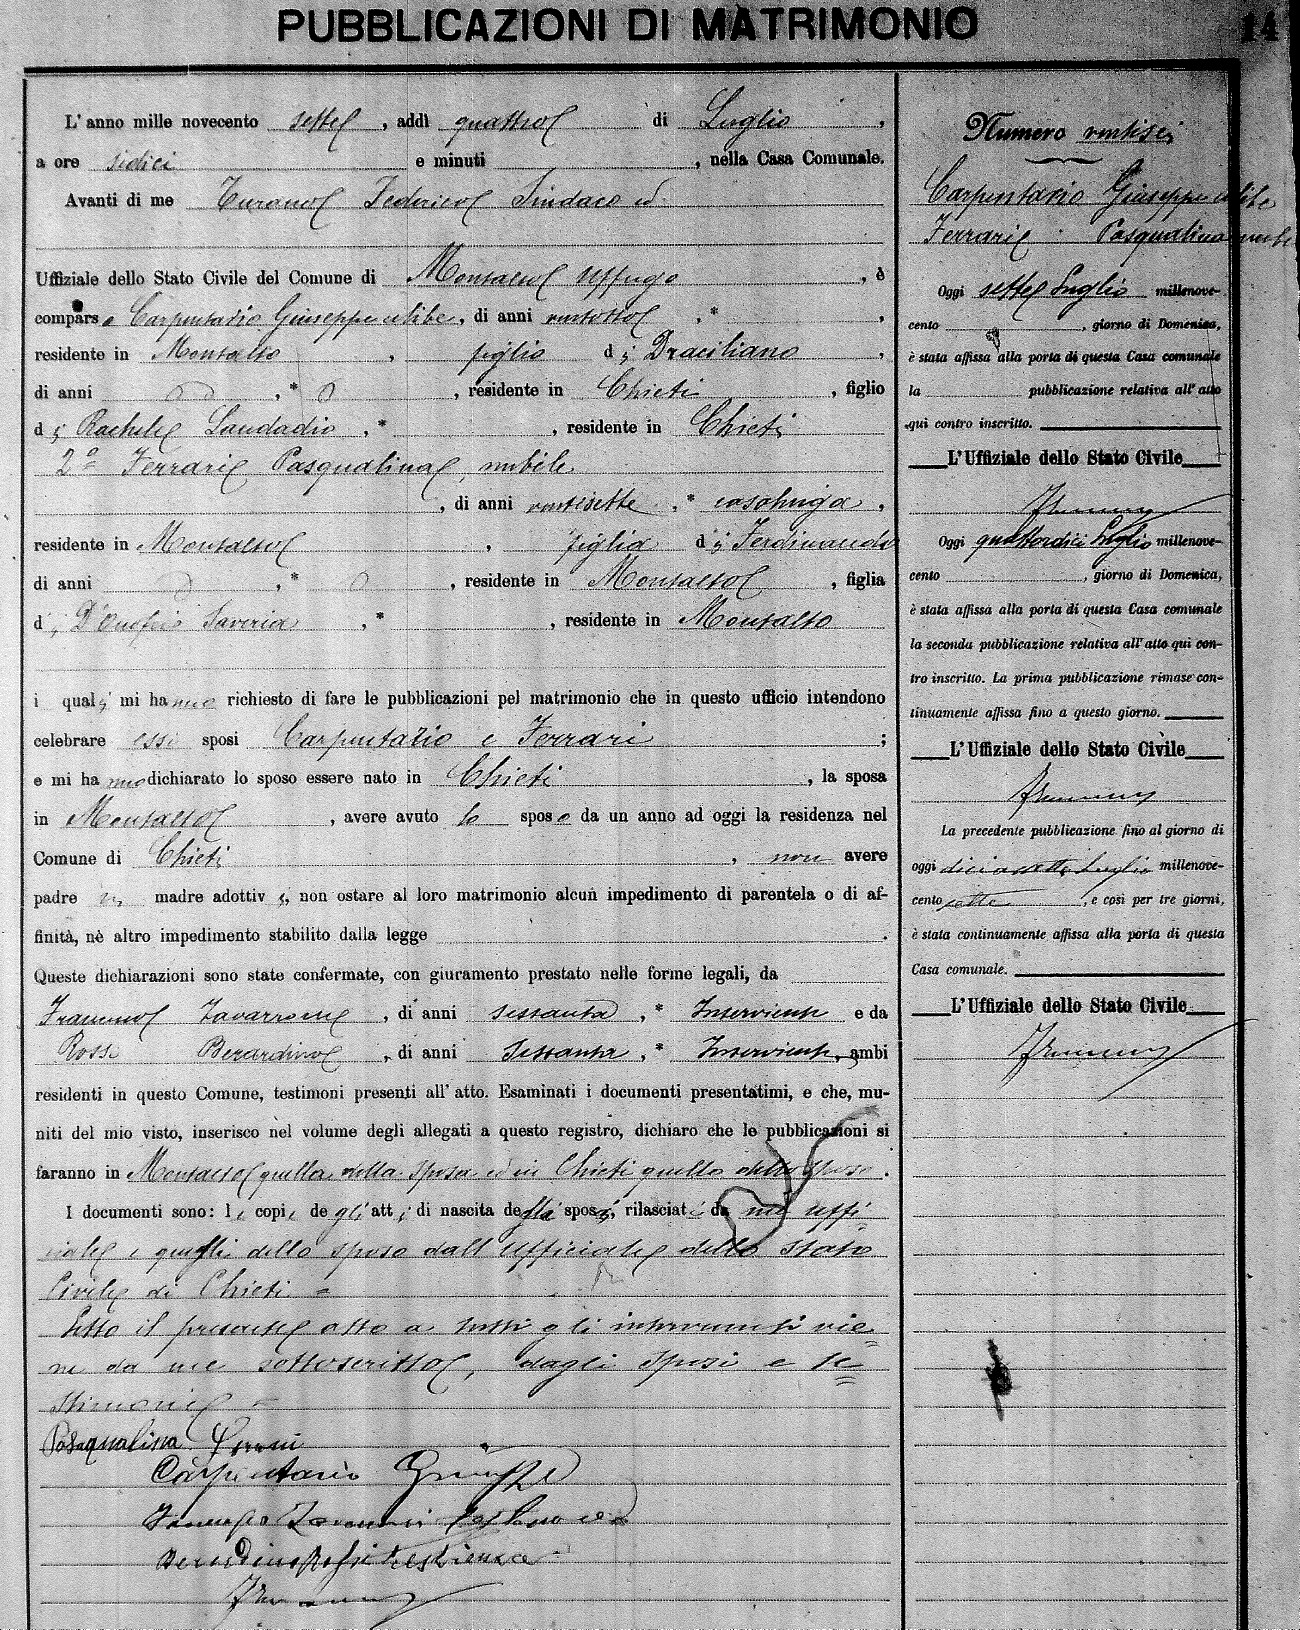 PUBBLICAZIONI DI MATRIMONIO
14
L'anno mille novecento sette, addì quattro di Luglio,
a ore sidici e minuti , nella Casa Comunale.
Avanti di me Federico Sindaco ed
Uffiziale dello Stato Civile del Comune di Montalto Uffugo, è
compars o Carpentario Giuseppe celibe, di anni ventotto, *
residente in Montalto, figlio di Draciliano,
di anni , * , residente in Chieti, figlio
di Rachele Laudadio, * , residente in Chieti
2° Ferrari Pasqualina, nubile
, di anni ventisette, * casalinga,
residente in Montalto, figlia di Ferdinando
di anni , * , residente in Montalto, figlia
di D'Onofrio Saveria, * , residente in Montalto
i quali mi hanno richiesto di fare le pubblicazioni pel matrimonio che in questo ufficio intendono
celebrare essi sposi Carpentario e Ferrari ;
e mi hanno dichiarato lo sposo essere nato in Chieti, la sposa
in Montalto, avere avuto lo sposo da un anno ad oggi la residenza nel
Comune di Chieti, non avere
padre madre adottivi, non ostare al loro matrimonio alcun impedimento di parentela o di af-
finità, nè altro impedimento stabilito dalla legge .
Queste dichiarazioni sono state confermate, con giuramento prestato nelle forme legali, da
, di anni sessanta, * Inserviente e da
Rossi Berardino, di anni sessanta, * Inserviente, ambi
residenti in questo Comune, testimoni presenti all'atto. Esaminati i documenti presentatimi, e che, mu-
niti del mio visto, inserisco nel volume degli allegati a questo registro, dichiaro che le pubblicazioni si
faranno in Montalto quella della sposa ed in Chieti quella dello sposo.
I documenti sono: le copie degli atti di nascita degli sposi, rilasciati da me uffi-
ciale e quelli dello sposo dall'Ufficiale dello Stato
Civile di Chieti =
Letto il presente atto a tutti gli intervenuti vie-
ne da me sottoscritto, dagli sposi e te-
stimoni =
Pasqualina Ferrari
Carpentario Giuseppe
Berardino Rossi testimone
Numero ventisei
Carpentario Giuseppe celibe
Ferrari Pasqualina nubile
Oggi sette Luglio millenove-
cento , giorno di Domenica,
è stata affissa alla porta di questa Casa comunale
la pubblicazione relativa all'atto
qui contro inscritto.
L'Uffiziale dello Stato Civile
Oggi quattordici Luglio millenove-
cento , giorno di Domenica,
è stata affissa alla porta di questa Casa comunale
la seconda pubblicazione relativa all'atto qui con-
tro inscritto. La prima pubblicazione rimase con-
tinuamente affissa fino a questo giorno.
L'Uffiziale dello Stato Civile
La precedente pubblicazione fino al giorno di
oggi diciassette Luglio millenove-
cento sette, e così per tre giorni,
è stata continuamente affissa alla porta di questa
Casa comunale.
L'Uffiziale dello Stato Civile